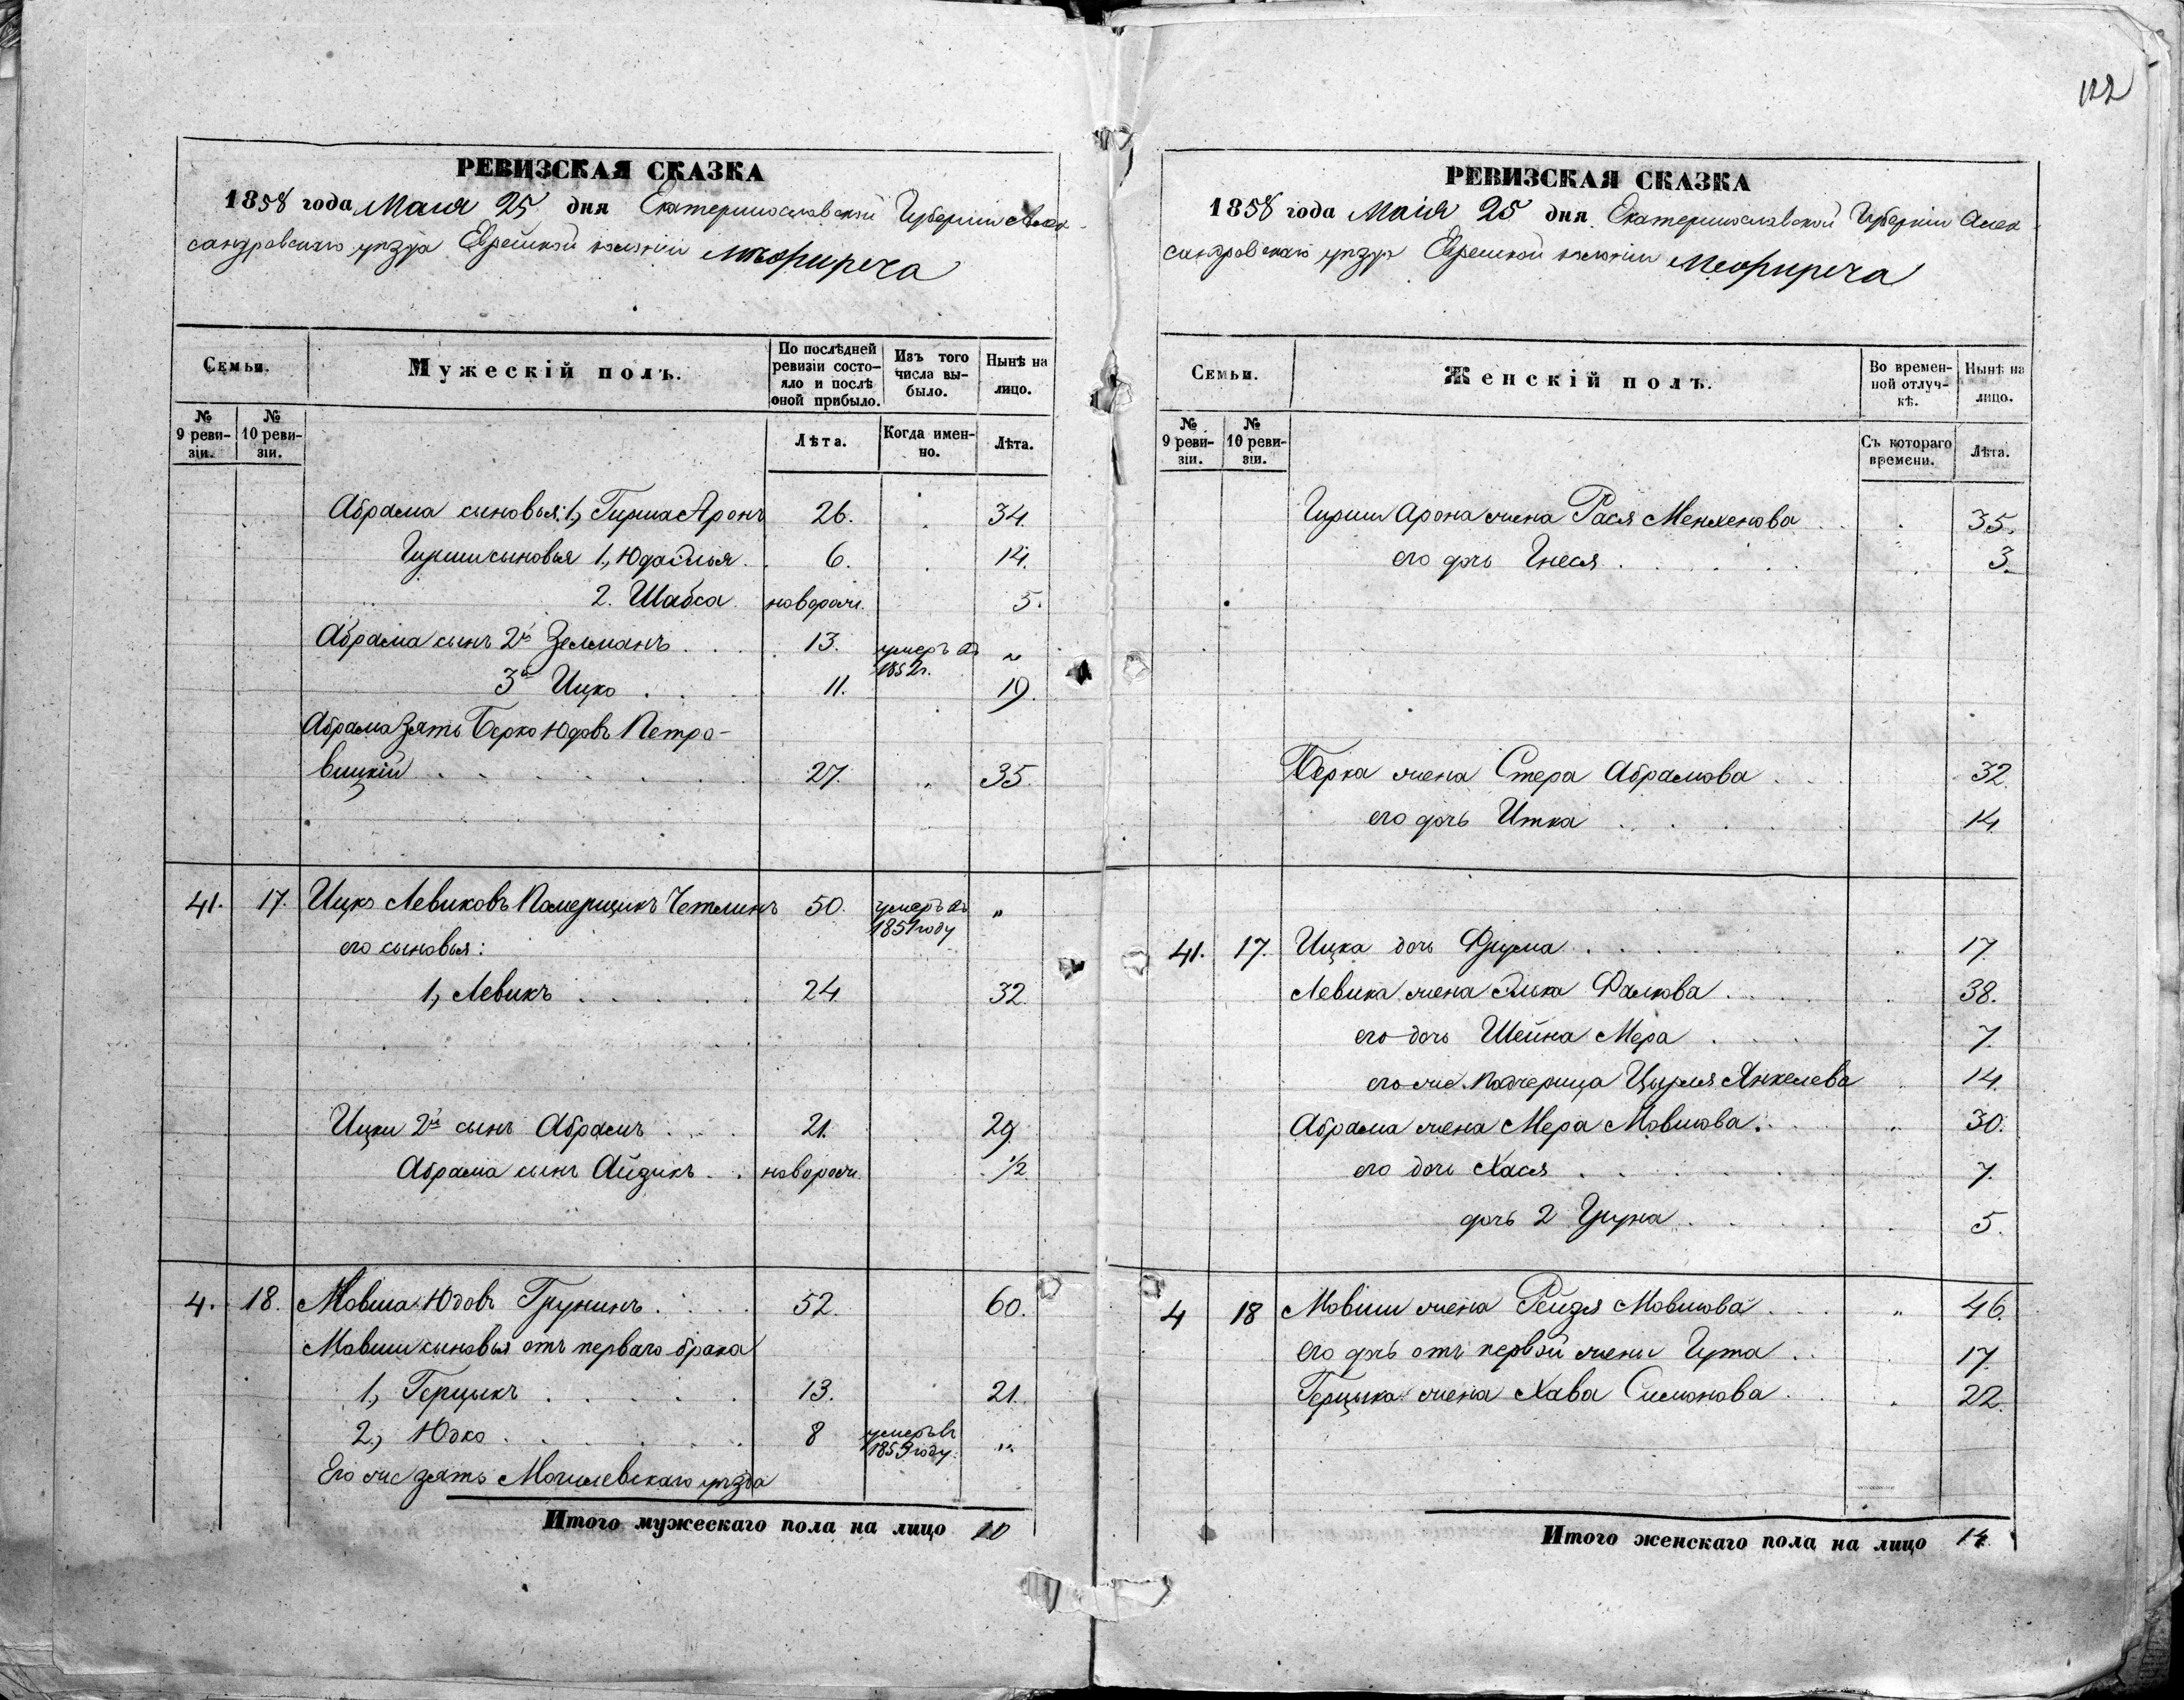 122
РЕВИЗСКАЯ СКАЗКА
1858 года Маия 25 дня Екатеринославской Губерніи Алек-
сандровскаго уѣзда Еврейской колоніи
Семьи. Мужескій полъ. По послѣдней ревизіи состояло и послѣ оной прибыло. Изъ того числа выбыло. Нынѣ на лицо.
№ 9 ревизіи. № 10 ревизіи. Лѣта. Когда именно. Лѣта.
Абрама сыновья: 1, Гирша Аронъ 26. 34.
Гирши сыновья 1, Юда Эмья 6. 14.
2. Шабса новорож. 5.
Абрама сынъ 2й Зелманъ 13. умеръ въ 1852г. „
3й Ицко 11. 19.
Абрама зять Берко Юдовъ Петро-
вицкій 27. „ 35.
41. 17. Ицко Левиковъ Померщикъ Четлинъ 50. умеръ въ 1851 году „
его сыновья:
1, Левикъ 24 32.
Ицки 2й сынъ Абрамъ 21. 29
Абрама сынъ Айзикъ новорож. 1/2
4. 18. Мовша Юдовъ Грунинъ 52. 60.
Мовши сыновья отъ перваго брака
1, Герцыкъ 13. 21.
2, Юдко 8 умеръ въ 1853 году „
Его же зять Могилевскаго уѣзда
Итого мужескаго пола на лицо 10
РЕВИЗСКАЯ СКАЗКА
1858 года Маія 25 дня Екатеринославской Губерніи Алек-
сандровскаго уѣзда Еврейской колоніи
Семьи. Женскій полъ. Во временной отлучкѣ. Нынѣ на лицо.
№ 9 ревизіи. № 10 ревизіи. Съ котораго времени. Лѣта.
Гирши Арона жена Рася Менхенова 35.
его дочь Гнеся 3.
Берка жена Стера Абрамова 32.
его дочь Итка 14
41. 17. Ицка дочь Фрума 17
Левика жена Элька Фалкова 38.
его дочь Шейна Мера 7.
его же Падчерица Цырля Янкелева 14.
Абрама жена Мера Мовшова „ 30.
его дочь Хася 7.
дочь 2 Груна 5.
4 18 Мовши жена Рейзя Мовшова „ 46.
его дочь отъ первой жены Гута 17.
Герцыка жена Хава Симонова 22.
Итого женскаго пола на лицо 14.